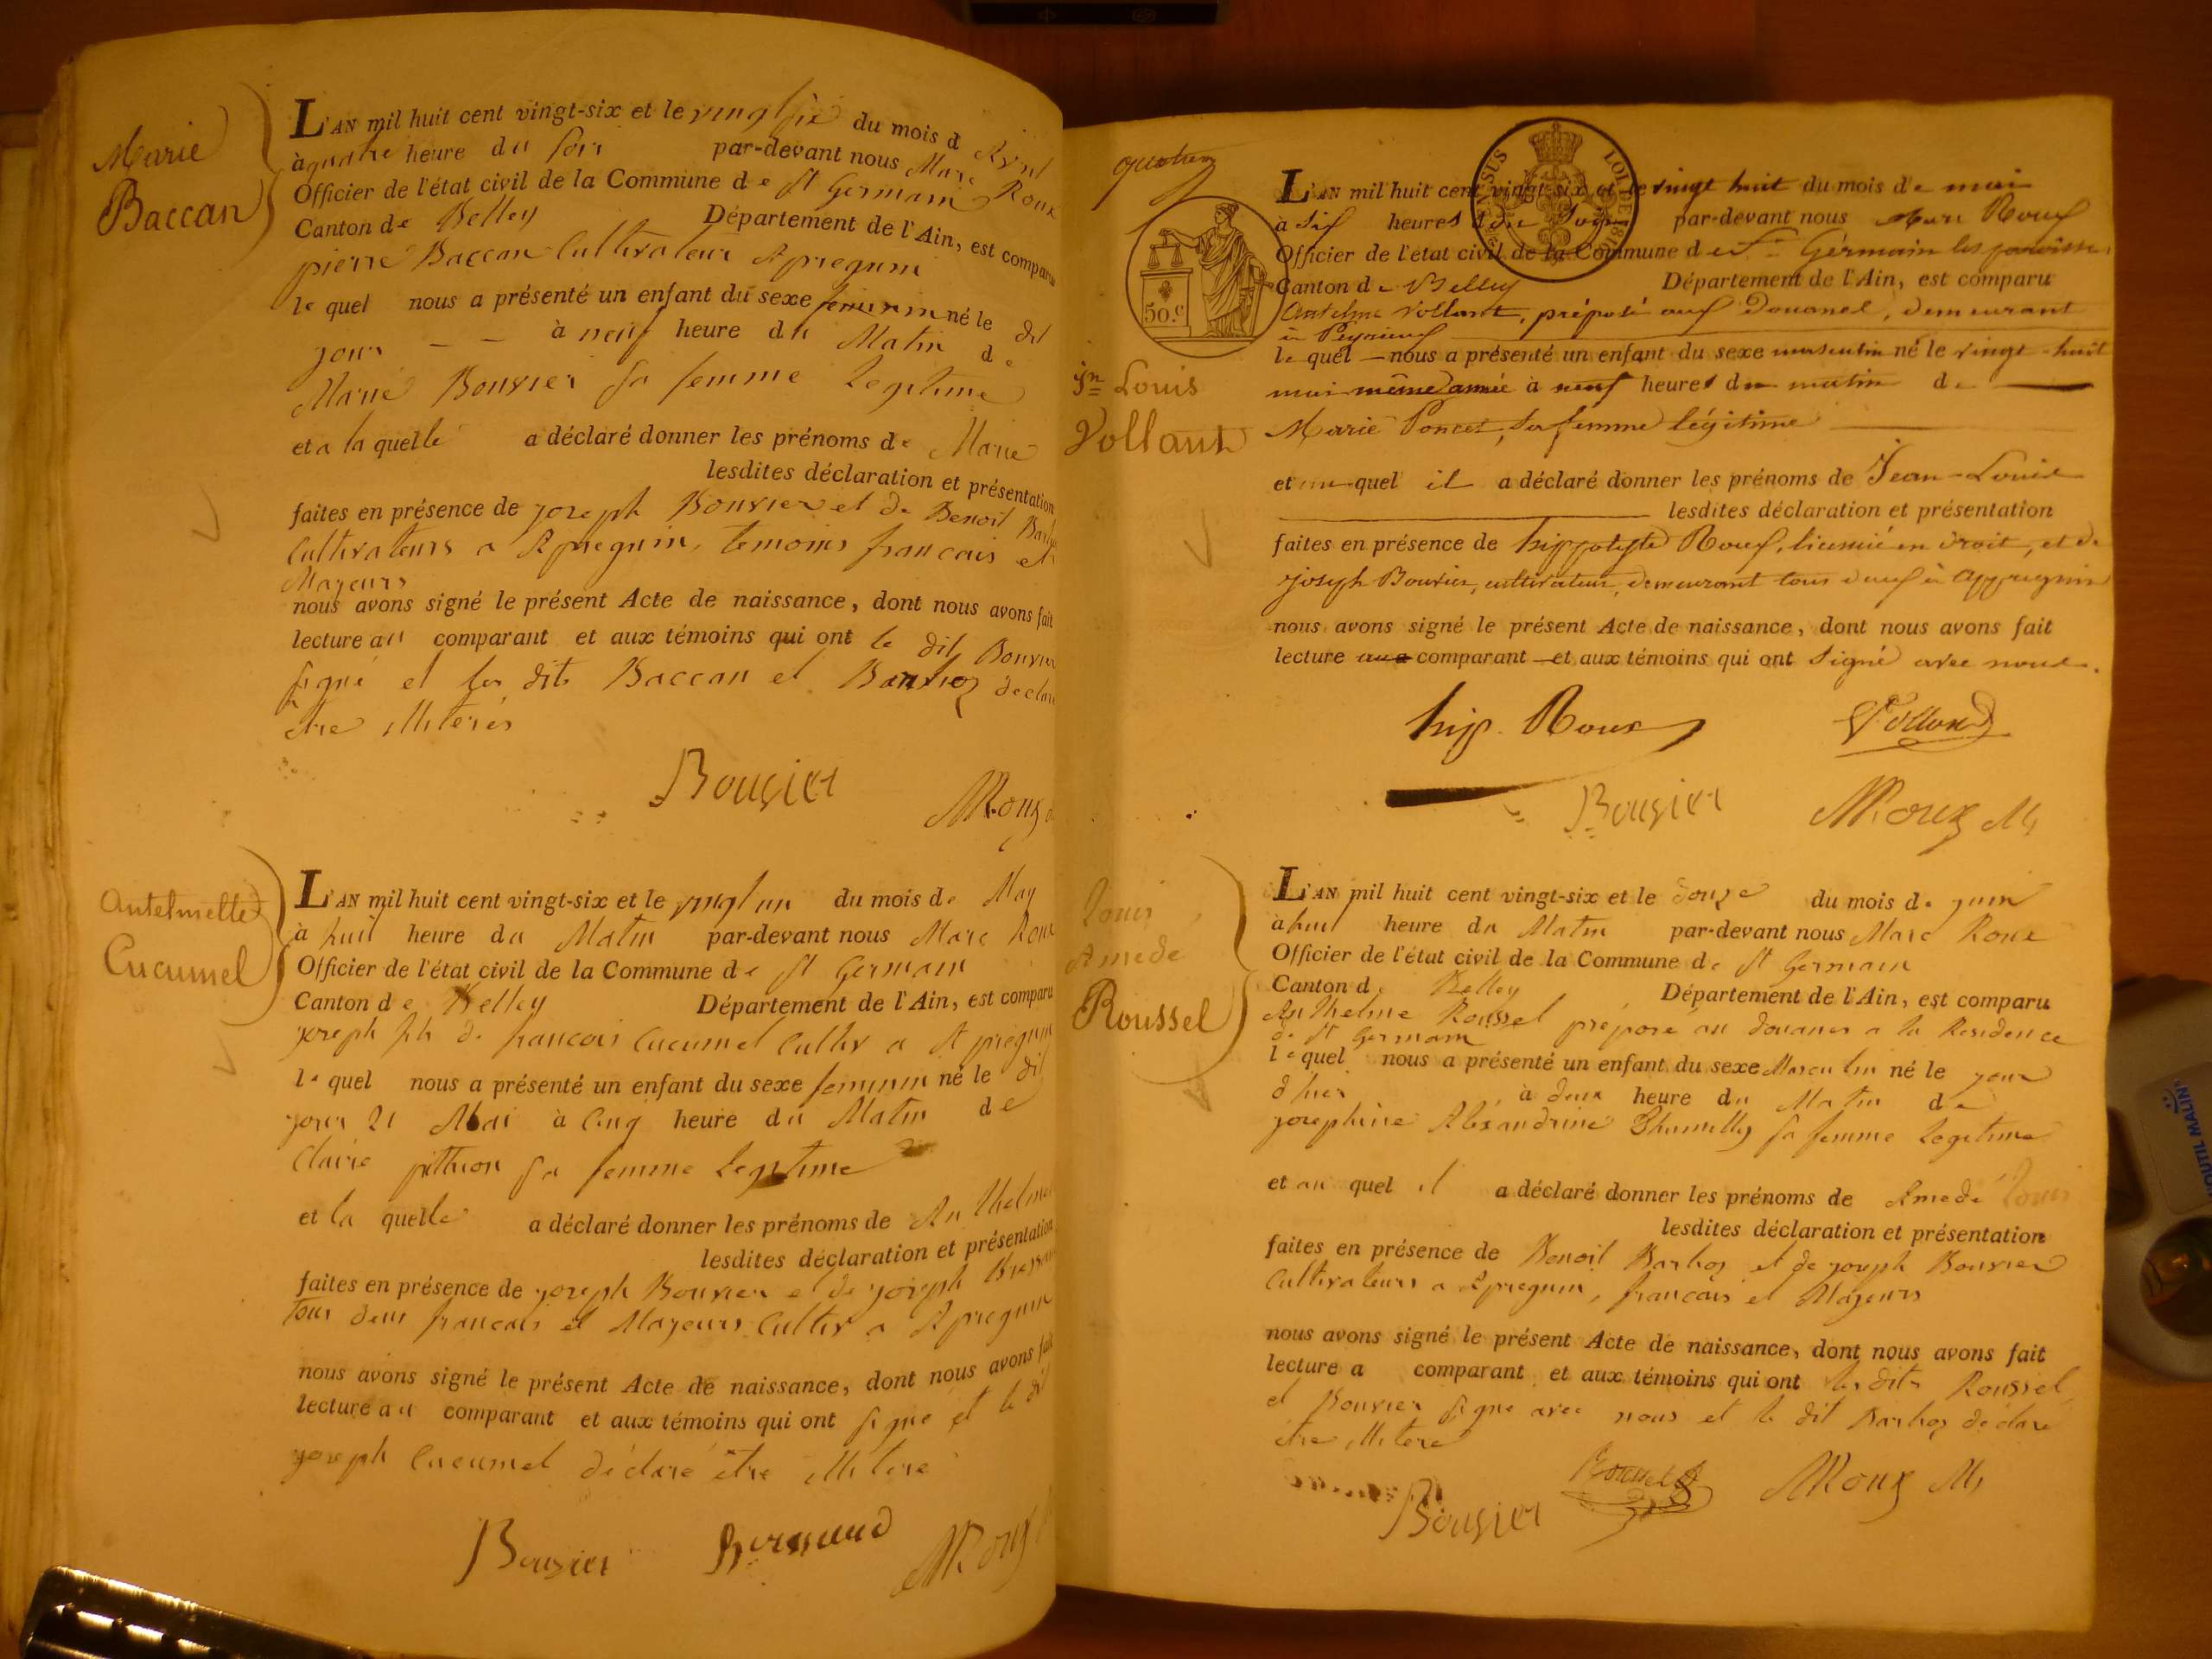 Marie
Baccan
L'AN mil huit cent vingt-six et le vingt six du mois d Avril
à quatre heure du soir par-devant nous Marc Roux
Officier de l'état civil de la Commune de St Germain
Canton de Belley Département de l'Ain, est comparu
pierre Baccan Cultivateur Apregnin
le quel nous a présenté un enfant du sexe feminin né le dit
jour à neuf heure du Matin de
Marie Bouvier sa femme legitime
et a la quelle a déclaré donner les prénoms de Marie
lesdites déclaration et présentation
faites en présence de joseph Bouvier et de Benoit
Cultivateurs a Apregnin, temoins francais et
Mageurs
nous avons signé le présent Acte de naissance, dont nous avons fait
lecture au comparant et aux témoins qui ont le dit Bouvier
signé et les dits Baccan et Barhoz declaré
être illiterés
Bouvier
MRoux
Antelmette
Cucumel
L'AN mil huit cent vingt-six et le vingt un du mois de May
à huit heure du Matin par-devant nous Marc Roux
Officier de l'état civil de la Commune de St Germain
Canton de Belley Département de l'Ain, est comparu
joseph fils de francois Cucumel Cultiv a Apregnin
le quel nous a présenté un enfant du sexe feminin né le dit
jour 21 Mai à Cinq heure du Matin de
Claire pithion sa femme legitime
et la quelle a déclaré donner les prénoms de
lesdites déclaration et présentation
faites en présence de joseph Bouvier et de joseph
tous deux francais et Mageurs Cultiv a Apregnin
nous avons signé le présent Acte de naissance, dont nous avons fait
lecture au comparant et aux témoins qui ont signé et le dit
joseph Cucumel déclaré être illiteré
Bouvier
MRoux
50.c
Jn Louis
Vollant
L'AN mil huit cent vingt-six et le vingt huit du mois de mai
à six heures du soir par-devant nous Marc Roux
Officier de l'état civil de la Commune de St Germain les paroisses
Canton de Belley Département de l'Ain, est comparu
Antelme Vollant, préposé aux Douanes, demeurant
à Peyrieux
le quel nous a présenté un enfant du sexe masculin né le vingt-huit
mai même année à neuf heures du matin de
Marie Poncet, sa femme légitime
et au quel il a déclaré donner les prénoms de Jean-Louis
lesdites déclaration et présentation
faites en présence de hippolyte Roux, licencié en droit, et de
joseph Bouvier, cultivateur, demeurant tous deux à Appregnin
nous avons signé le présent Acte de naissance, dont nous avons fait
lecture au comparant et aux témoins qui ont signé avec nous.
hip. Roux
Volland
Bouvier
MRoux
Louis
Amede
Roussel
L'AN mil huit cent vingt-six et le douze du mois de juin
à huit heure du Matin par-devant nous Marc Roux
Officier de l'état civil de la Commune de St Germain
Canton d Belley Département de l'Ain, est comparu
Anthelme Roussel prepose au douanes a la Residence
de St Germain
le quel nous a présenté un enfant du sexe Masculin né le jour
d'hier à deux heure du Matin de
josephine Aléxandrine sa femme legitime
et au quel il a déclaré donner les prénoms de Amedé Louis
lesdites déclaration et présentation
faites en présence de Benoit Barhoz et de joseph Bouvier
Cultivateurs a Apregnin, francais et Mageurs
nous avons signé le présent Acte de naissance, dont nous avons fait
lecture a comparant et aux témoins qui ont les dits Roussel
et Bouvier signe avec nous et le dit Barhoz declaré
être illiteré
Bouvier
Roussel
MRoux